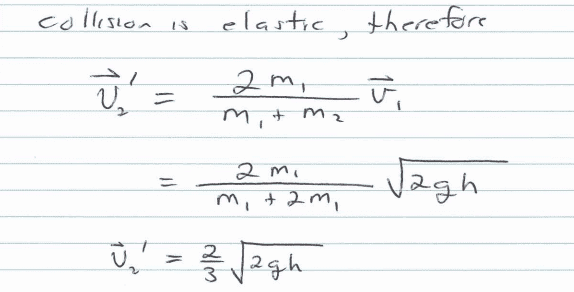 collision is elastic, therefore
$\vec{v}_2' = \frac{2m_1}{m_1 + m_2} \vec{v}_1$
$= \frac{2m_1}{m_1 + 2m_1} \sqrt{2gh}$
$\vec{v}_2' = \frac{2}{3} \sqrt{2gh}$